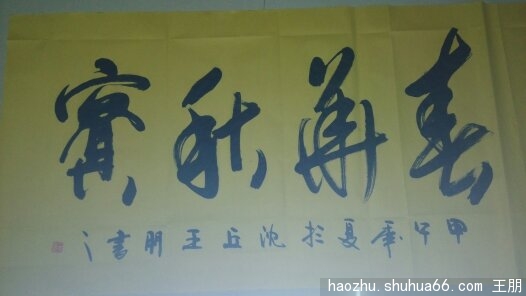 春華秋實
甲午年夏於沈丘王朋書
haozhu.shuhua66.com 王朋